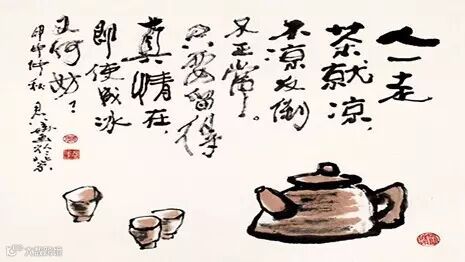 人一走
茶就凉，
不凉反倒
不正常。
只要留得
真情在，
即使成冰
又何妨！
大数跨境